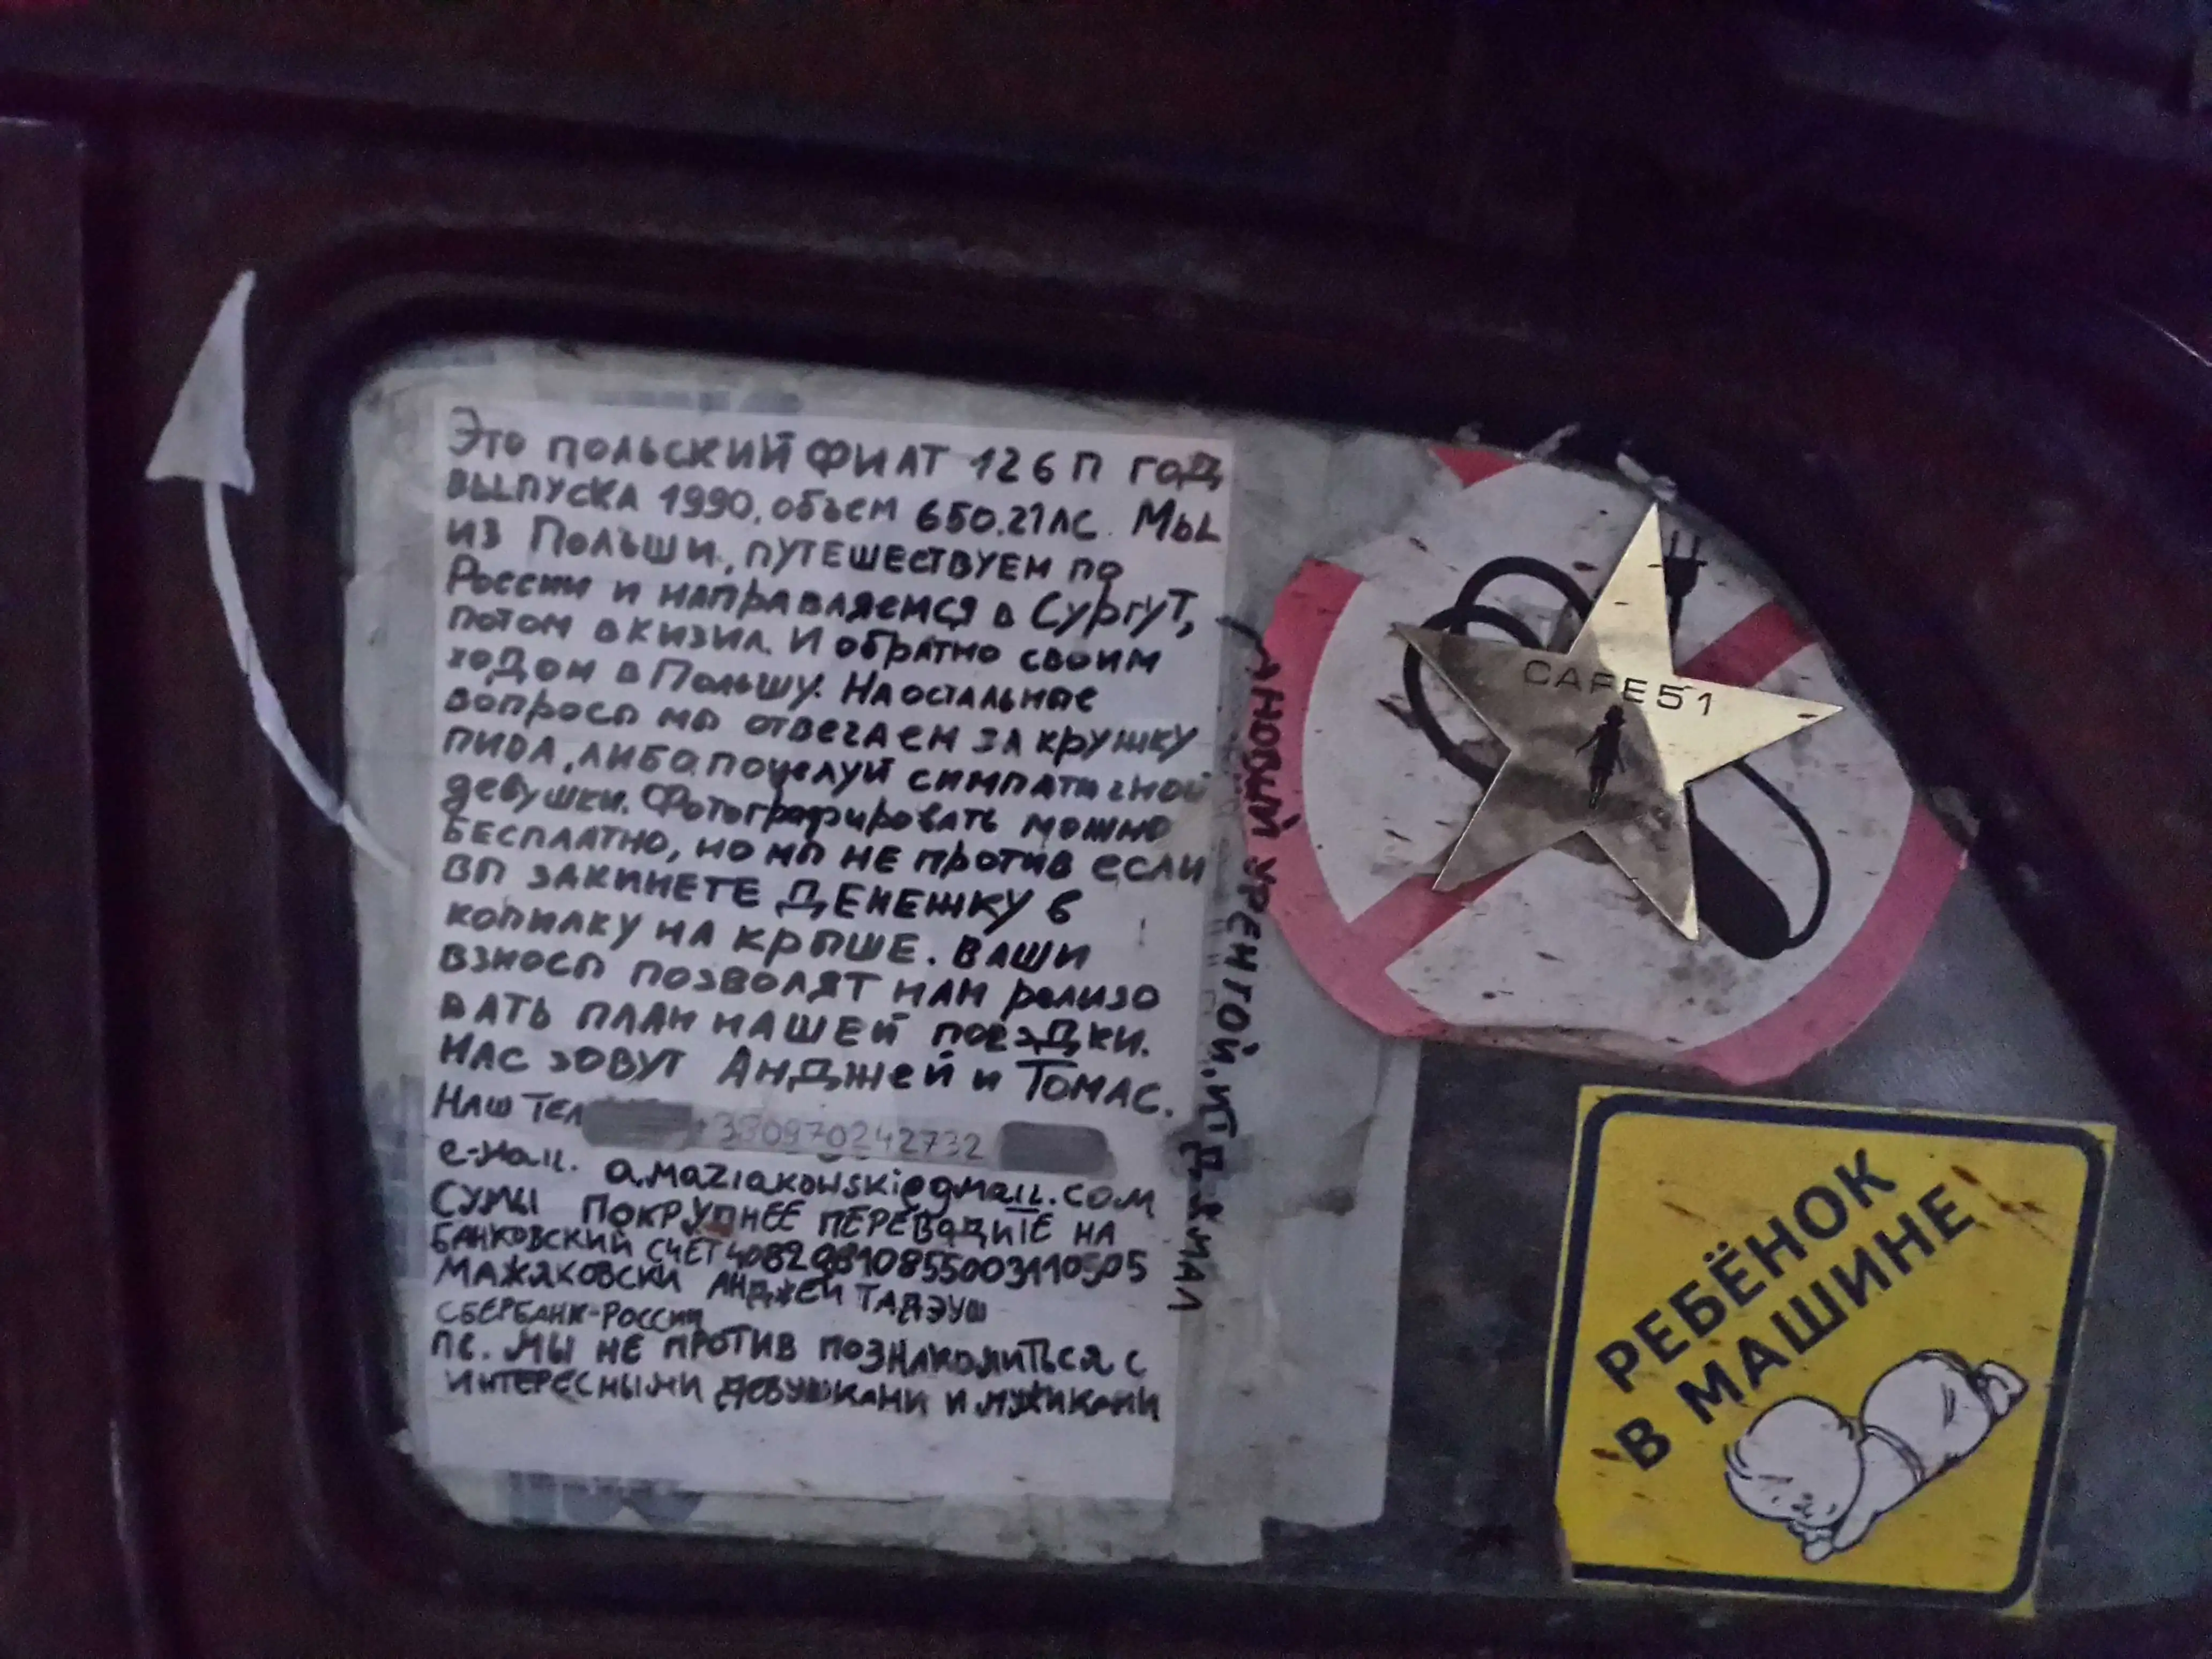 Это польский фиат 126п год
выпуска 1990, объем 650.21лс. Мы
из Польши, путешествуем по
России и направляемся в Сургут,
потом в Кизил. И обратно своим
ходом в Польшу. На остальные
вопросы мы отвечаем за кружку
пива, либо поцелуй симпатичной
девушки. Фотографировать можно
бесплатно, но мы не против если
вы закинете денежку в
копилку на крыше. Ваши
взносы позволят нам релизо
вать план нашей поездки.
Нас зовут Анджей и Томас.
Наш тел +380970242732
e-mail. a.maziakowski@gmail.com
Сумы покрупнее переводите на
банковский счёт 40820810855003110505
Мажяковски Анджей Тадэуш
Сбербанк-России
пс. Мы не против познакомиться с
интересными девушками и мужиками
Новый Уренгой. ИТД. Ямал
CAFE51
РЕБЁНОК
В МАШИНЕ